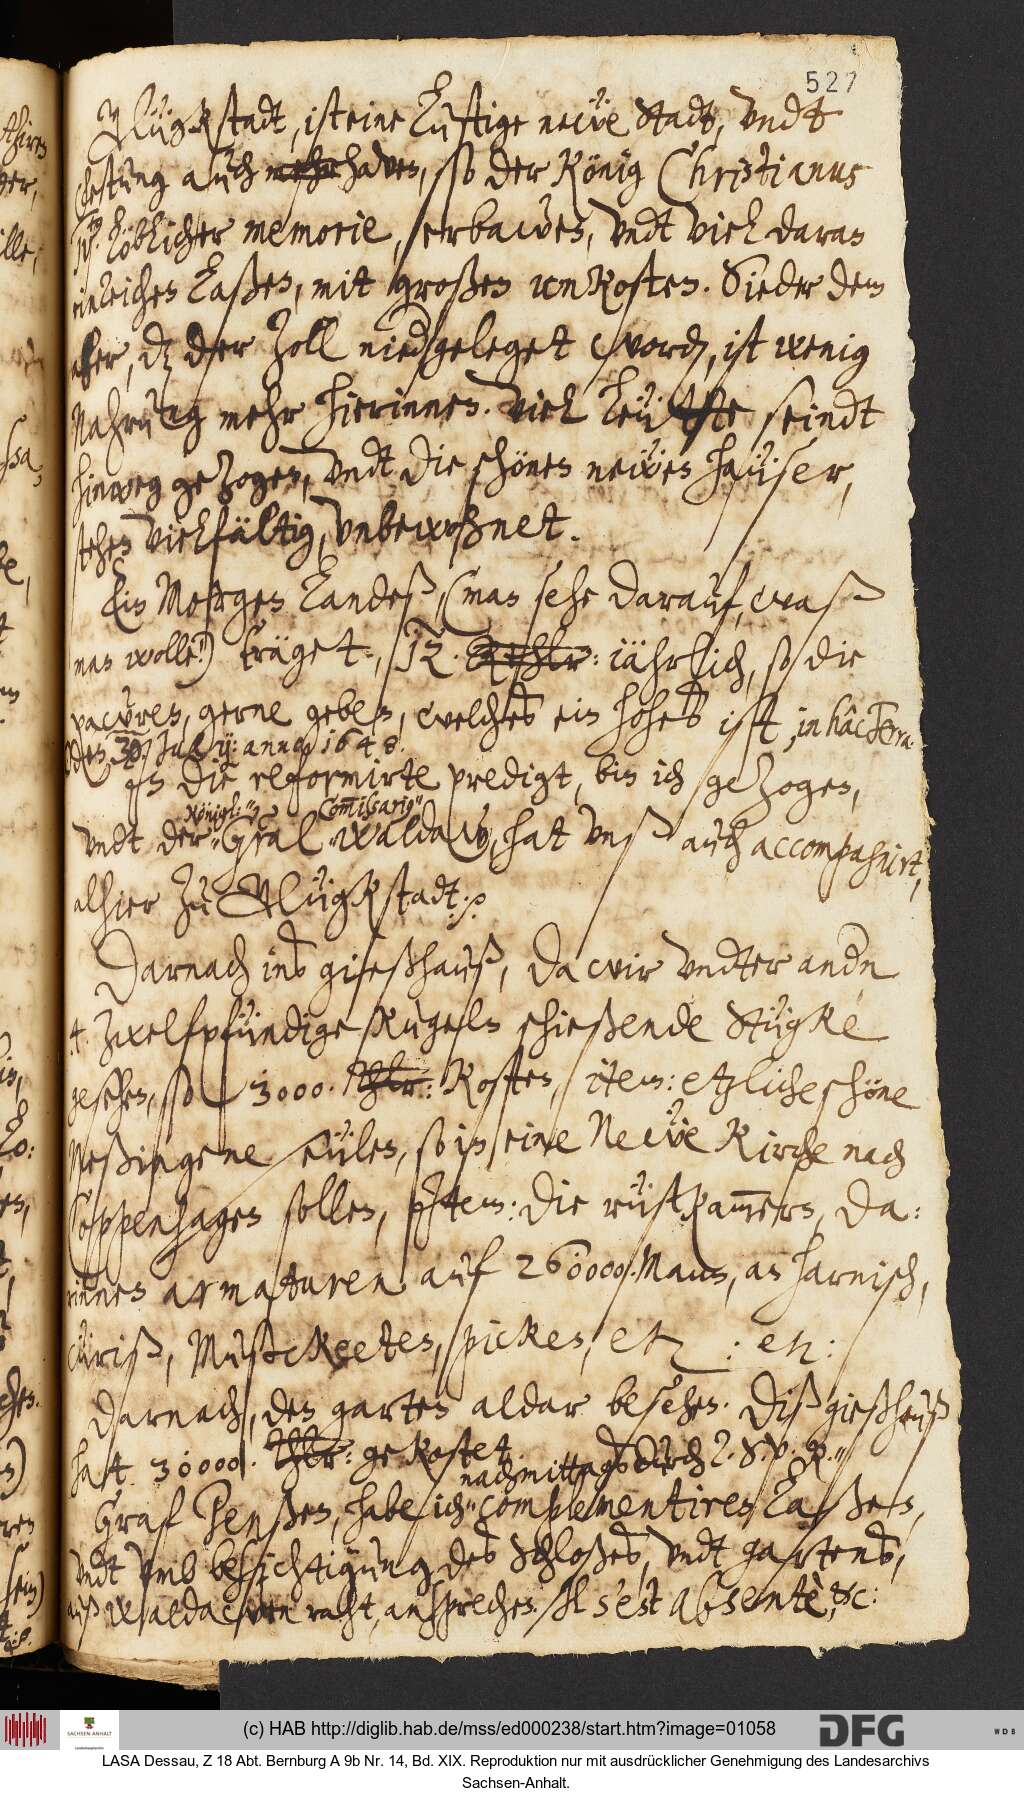 527
Glückstadt, ist eine Lustige neẅe Stadt, vndt
vestung auch mehr haven, so der König Christianus
IV. löblicher memorie, erbawen, vndt viel daran
einteichen Laßen, mit großen vnkosten. Sieder dem
aber, dz der Zoll niedergeleget worden, ist wenig
Nahrung mehr hierinnen. Viel Leütte seindt
hinweg gezogen, vndt die schönen neẅen haüser,
stehen vielfältig, vnbewohnet.
Ein Morgen Landeß, (man sehe darauf, waß
man wolle) träget, 12. Thlr: iährlich, so die
pawren, gerne geben, welches ein hohes ist, in hac Terra.
den 30. July: anno 1648.
In die reformirte predigt, bin ich gezogen,
Königl: Commissarius
vndt der Graf Waldaw, hat vnß auch accompagnirt,
alhier zu Glückstadt.
Darnach ins gießhauß, da wir vndter andern
4. zwelfpfündige kugeln schießende Stügke
gesehen, so 3000. Thlr: kosten, item: etzliche schöne
Meßingene seülen, so in eine Neẅe Kirche nach
Coppenhagen sollen, Item: die rüstkammern, da:
rinnen armaturen auf 26000 Mann, an harnisch,
cüriß, Mußckeeten, picken, etc: etc:
Darnach, den garten aldar besehen. Diß gießhauß
hatt 30000. Thlr: gekostet.
nachmittags durch
Graf Penßen, habe ich complementiren Laßen,
vndt vmb besichtigung des Schloßes, vndt gartens,
auß Waldawen raht, ansprechen. Il s'est absentè, &c:
(c) HAB http://diglib.hab.de/mss/ed000238/start.htm?image=01058
SACHSEN-ANHALT
DFG
WDB
LASA Dessau, Z 18 Abt. Bernburg A 9b Nr. 14, Bd. XIX. Reproduktion nur mit ausdrücklicher Genehmigung des Landesarchivs
Sachsen-Anhalt.